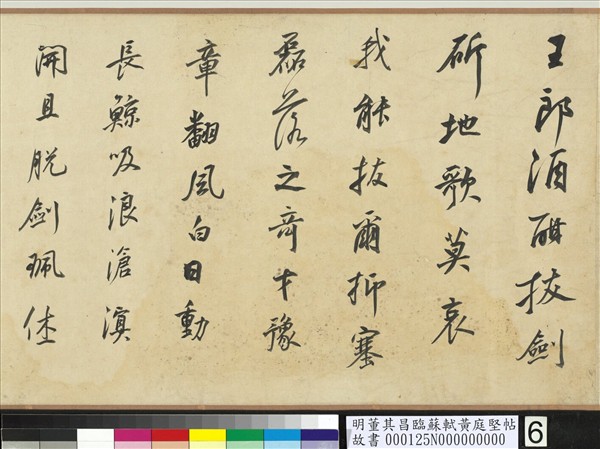 王郎酒酣拔劍
斫地歌莫哀
我能拔爾抑塞
磊落之奇才豫
章翻風白日動
長鯨吸浪滄溟
開且脫劍珮休
明董其昌臨蘇軾黃庭堅帖
故書 000125N000000000
6